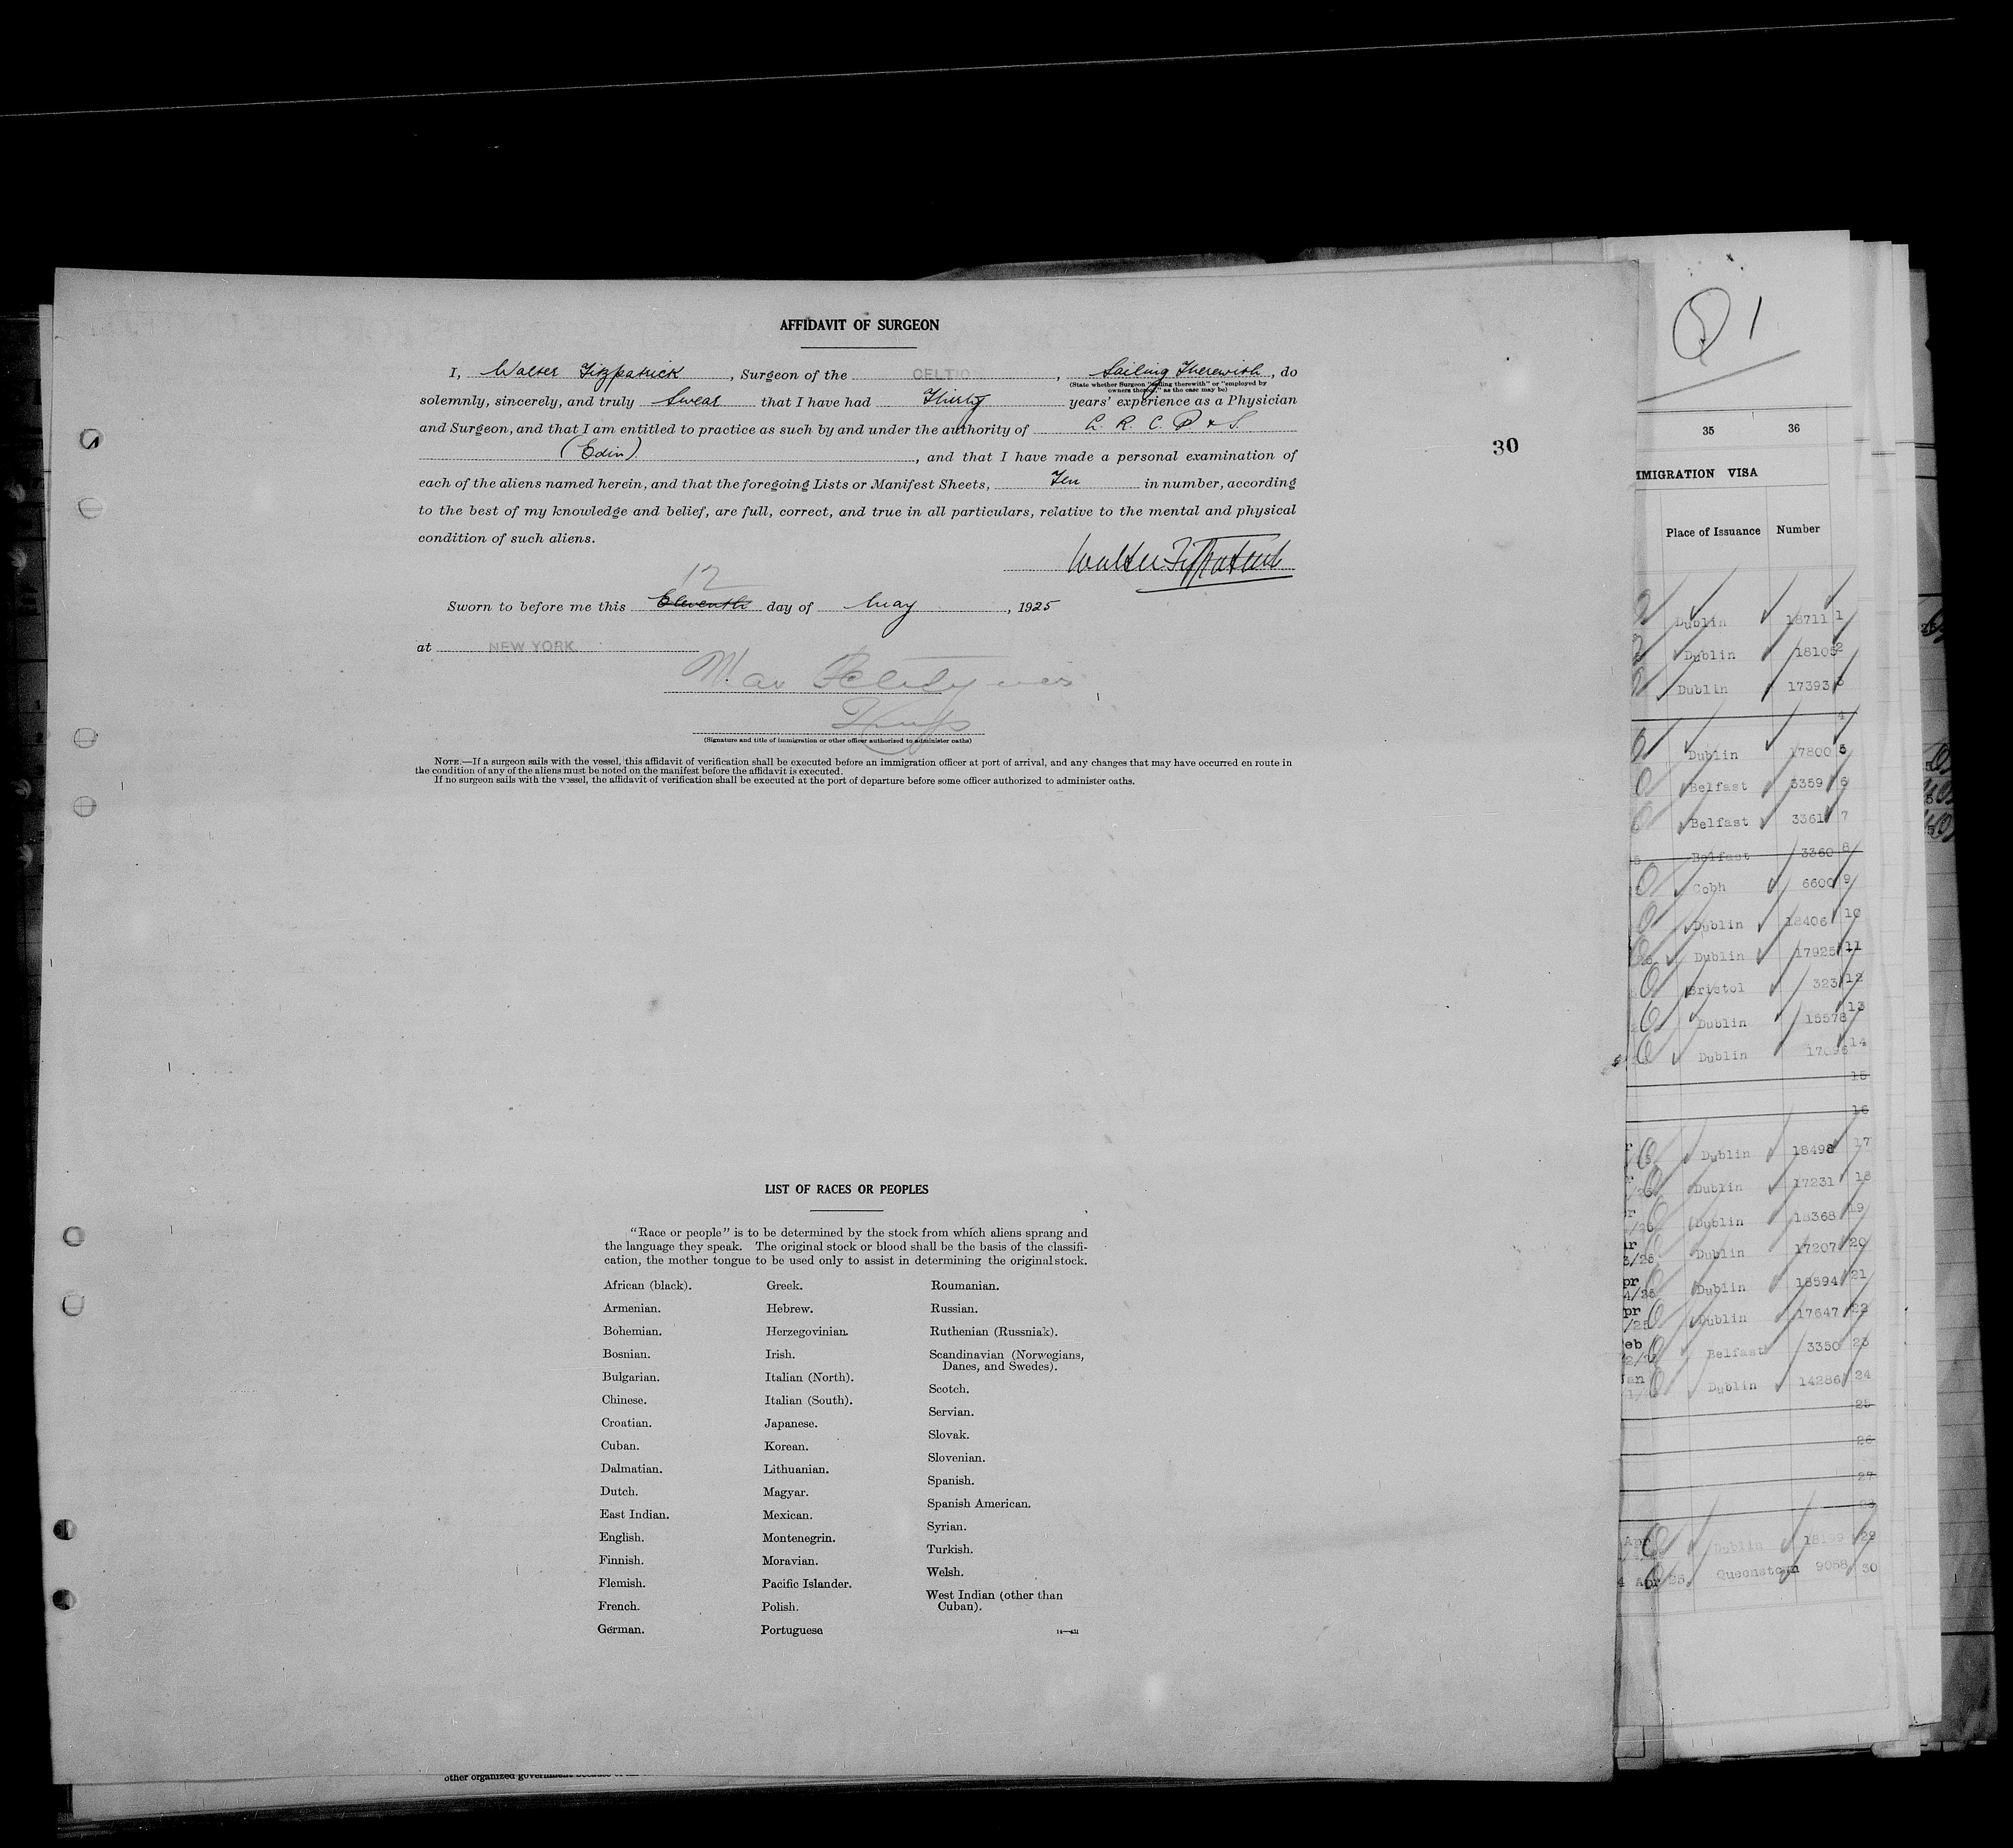 AFFIDAVIT OF SURGEON
I, Walter Fitzpatrick, Surgeon of the CELTIC, Sailing Therewith, do
(State whether Surgeon "sailing therewith" or "employed by
owners thereof," as the case may be)
solemnly, sincerely, and truly Swear that I have had Thirty years' experience as a Physician
and Surgeon, and that I am entitled to practice as such by and under the authority of L. R. C. P. & S.
(Edin), and that I have made a personal examination of
30
each of the aliens named herein, and that the foregoing Lists or Manifest Sheets, Ten in number, according
to the best of my knowledge and belief, are full, correct, and true in all particulars, relative to the mental and physical
condition of such aliens.
Walter Fitzpatrick
12
Sworn to before me this Eleventh day of May, 1925
at NEW YORK
(Signature and title of immigration or other officer authorized to administer oaths)
NOTE.—If a surgeon sails with the vessel, this affidavit of verification shall be executed before an immigration officer at port of arrival, and any changes that may have occurred en route in
the condition of any of the aliens must be noted on the manifest before the affidavit is executed.
If no surgeon sails with the vessel, the affidavit of verification shall be executed at the port of departure before some officer authorized to administer oaths.
LIST OF RACES OR PEOPLES
"Race or people" is to be determined by the stock from which aliens sprang and
the language they speak. The original stock or blood shall be the basis of the classifi-
cation, the mother tongue to be used only to assist in determining the original stock.
African (black).
Armenian.
Bohemian.
Bosnian.
Bulgarian.
Chinese.
Croatian.
Cuban.
Dalmatian.
Dutch.
East Indian.
English.
Finnish.
Flemish.
French.
German.
Greek.
Hebrew.
Herzegovinian.
Irish.
Italian (North).
Italian (South).
Japanese.
Korean.
Lithuanian.
Magyar.
Mexican.
Montenegrin.
Moravian.
Pacific Islander.
Polish.
Portuguese
Roumanian.
Russian.
Ruthenian (Russniak).
Scandinavian (Norwegians,
Danes, and Swedes).
Scotch.
Servian.
Slovak.
Slovenian.
Spanish.
Spanish American.
Syrian.
Turkish.
Welsh.
West Indian (other than
Cuban).
other organized government because of
1
35 36
IMMIGRATION VISA
Place of Issuance Number
Dublin 18711 1
Dublin 18105 2
Dublin 17393 3
4
Dublin 17800 5
Belfast 3359 6
Belfast 3361 7
Belfast 3360 8
Cobh 6600 9
Dublin 18406 10
Dublin 17925 11
Bristol 323 12
Dublin 15578 13
Dublin 14
15
16
Dublin 18498 17
Dublin 17231 18
Dublin 18368 19
Dublin 17207 20
Dublin 18594 21
Dublin 17647 22
Belfast 3350 23
Dublin 14286 24
25
26
27
28
Dublin 29
Apr Queenstown 9058 30